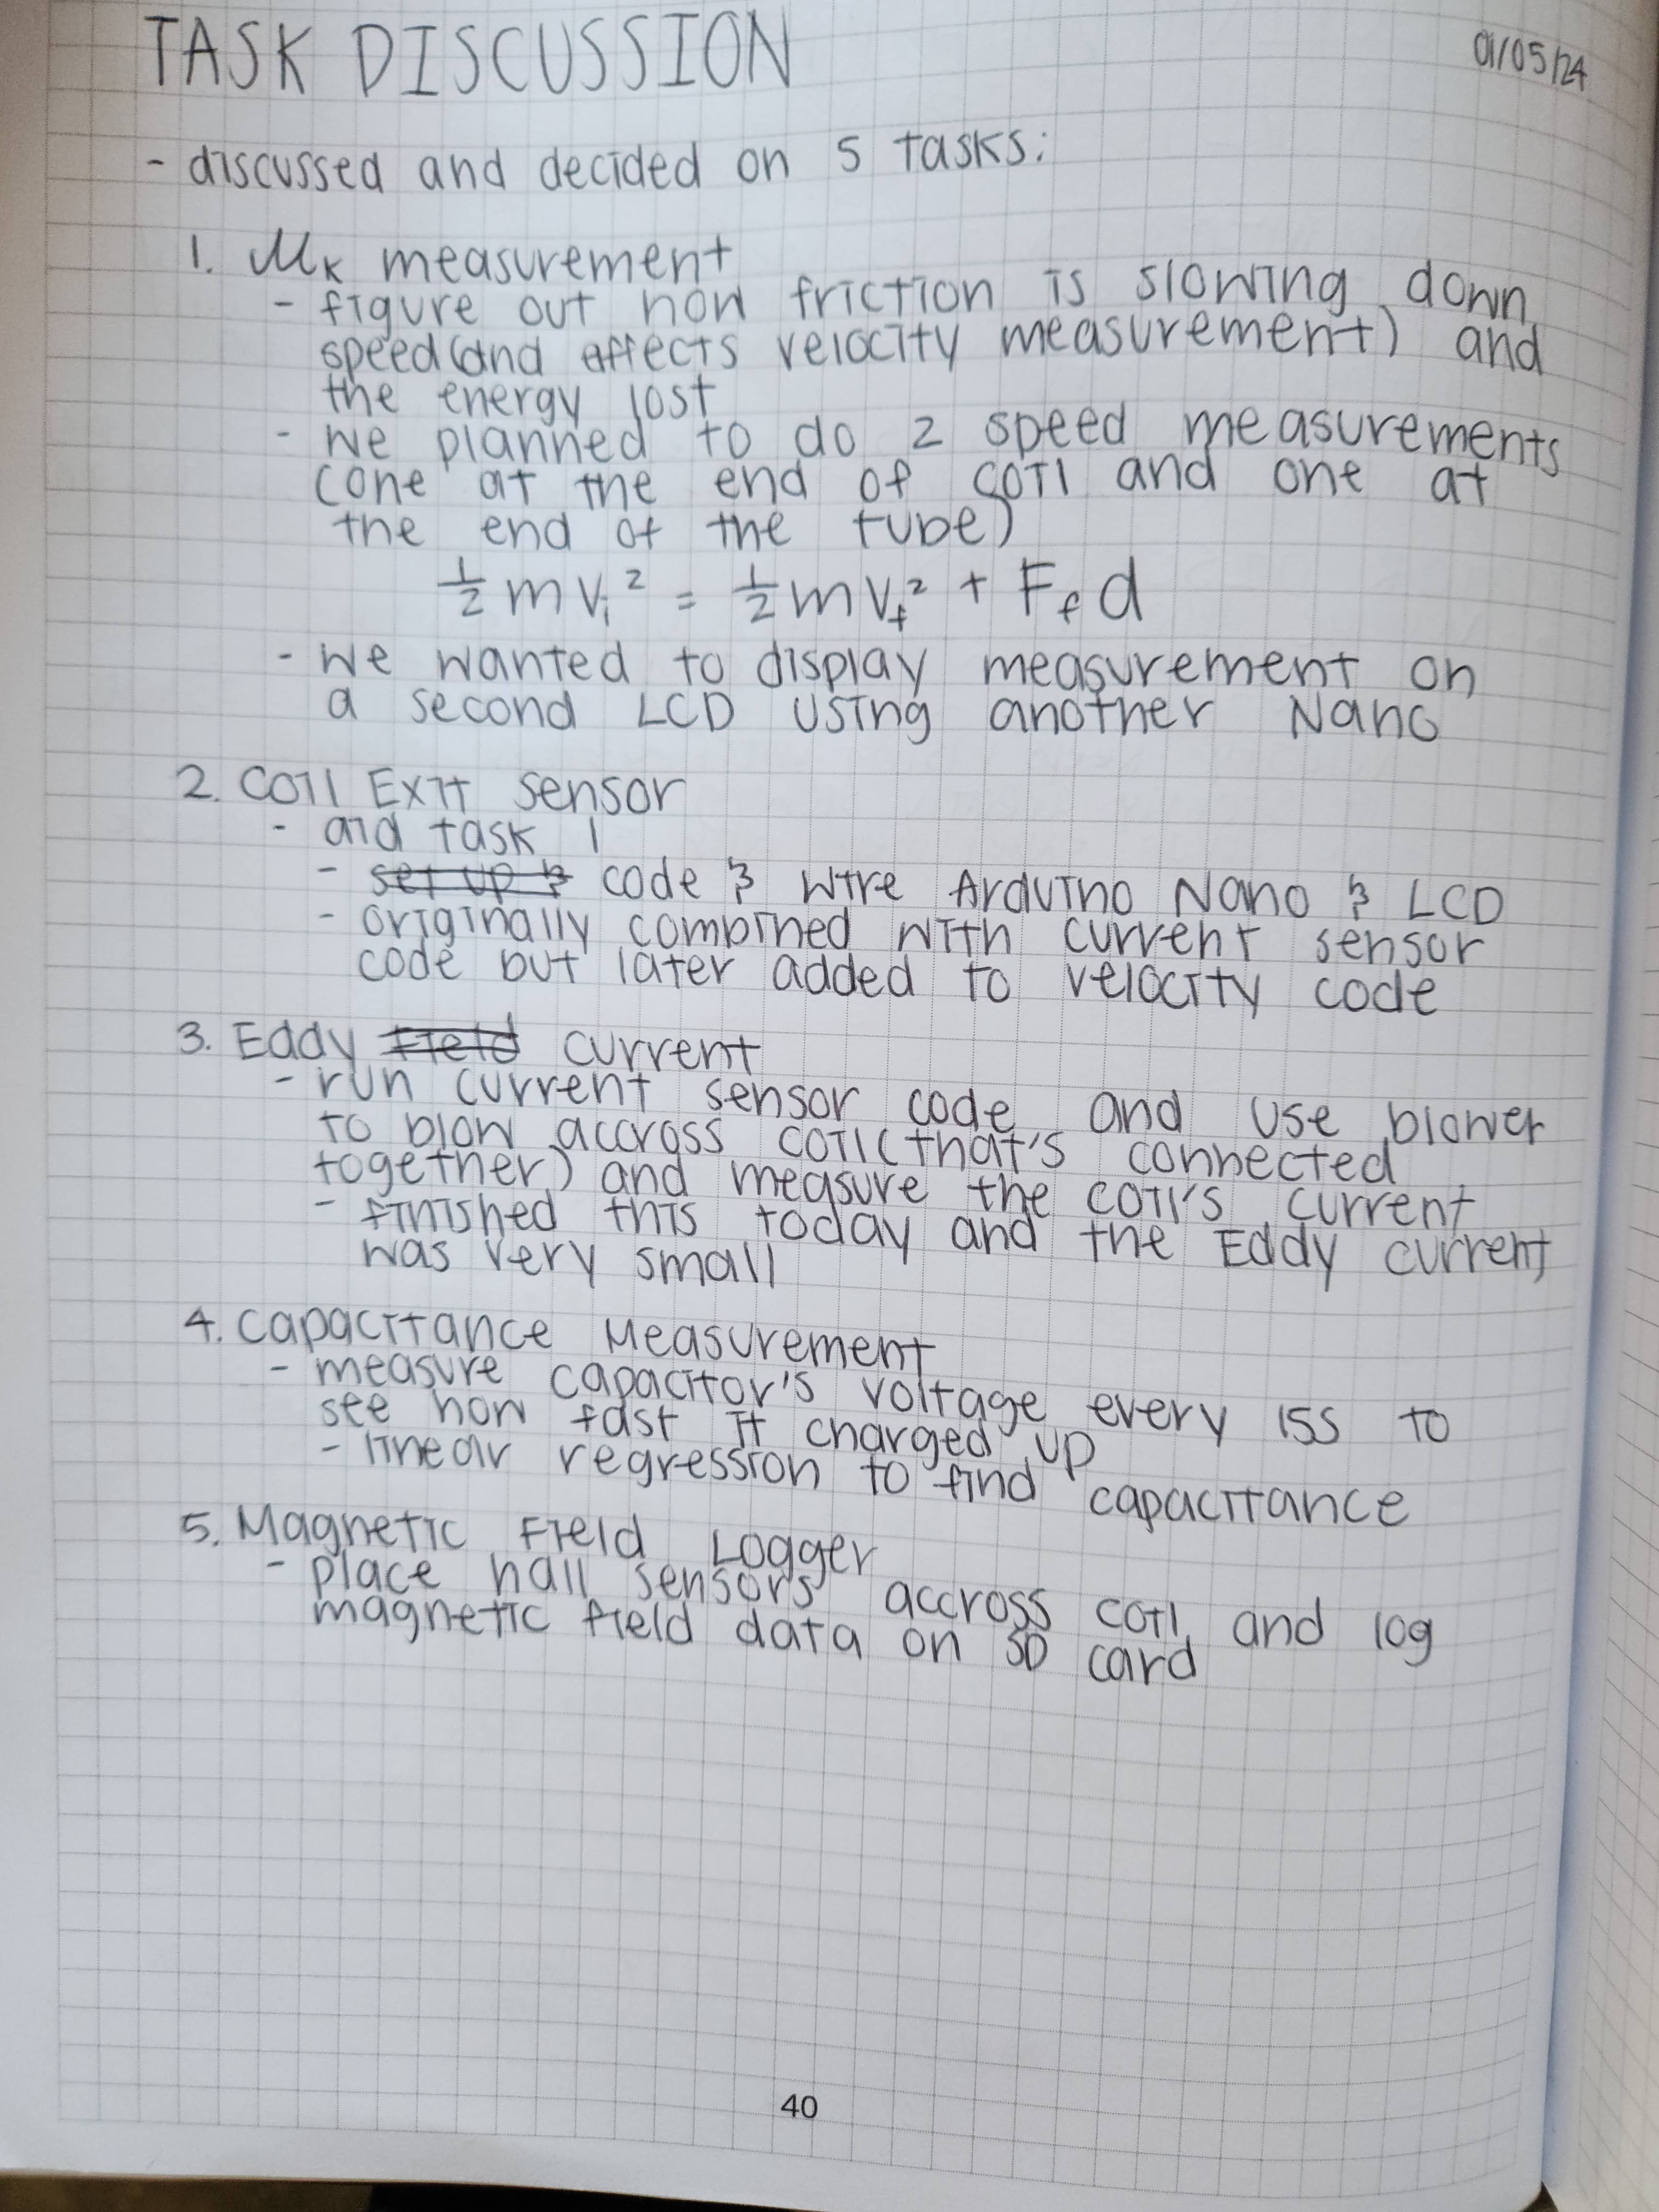 TASK DISCUSSION
01/05/24
- discussed and decided on 5 tasks:
1. μk measurement
- figure out how friction is slowing down
speed (and affects velocity measurement) and
the energy lost
- we planned to do 2 speed measurements
(one at the end of coil and one at
the end of the tube)
½ m vi² = ½ m vf² + Ff d
- we wanted to display measurement on
a second LCD using another Nano
2. Coil Exit sensor
- aid task 1
- set up & code & wire Arduino Nano & LCD
- originally combined with current sensor
code but later added to velocity code
3. Eddy Field current
- run current sensor code and use blower
to blow accross coil (that's connected
together) and measure the coil's current
- finished this today and the Eddy current
was very small
4. Capacitance Measurement
- measure capacitor's voltage every 15s to
see how fast it charged up
- linear regression to find capacitance
5. Magnetic Field Logger
- place hall sensors accross coil and log
magnetic field data on SD card
40